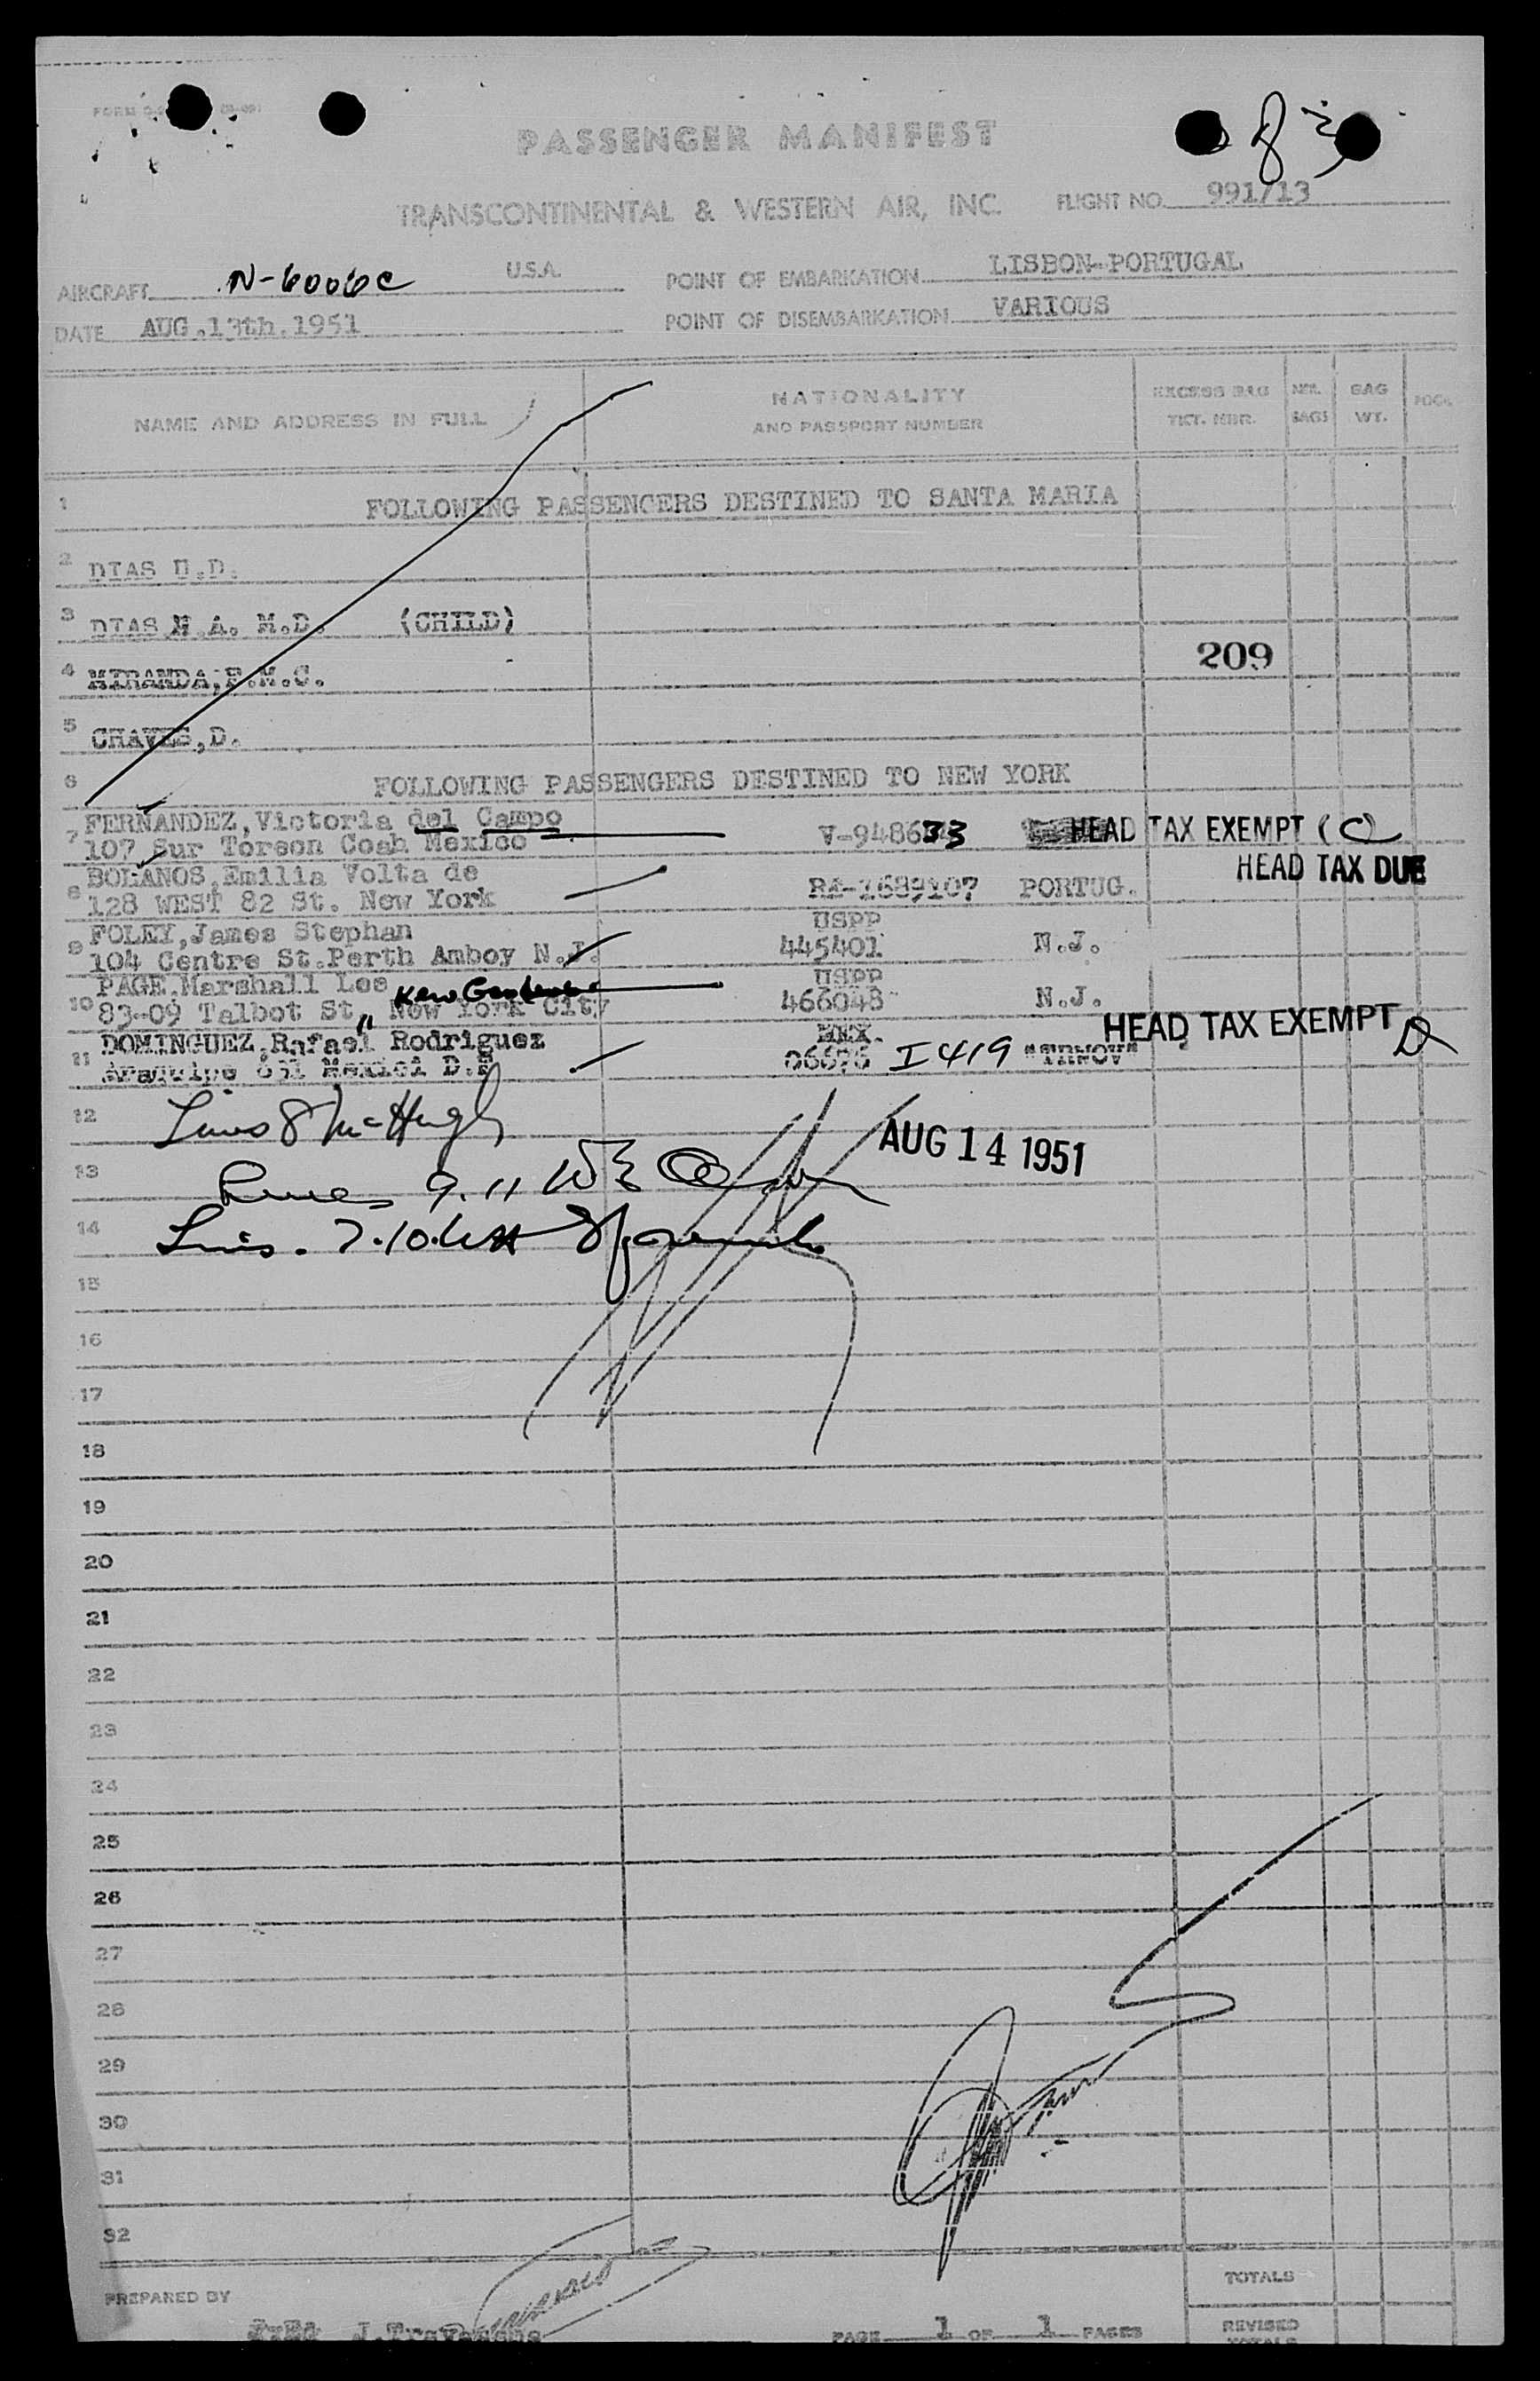 PASSENGER MANIFEST
TRANSCONTINENTAL & WESTERN AIR, INC. FLIGHT NO. 991/13
AIRCRAFT N-6006C U.S.A. POINT OF EMBARKATION LISBON-PORTUGAL
DATE AUG.13th.1951 POINT OF DISEMBARKATION VARIOUS
NAME AND ADDRESS IN FULL NATIONALITY AND PASSPORT NUMBER EXCESS BAG TKT. NBR. NBR. BAGS BAG WT.
1 FOLLOWING PASSENGERS DESTINED TO SANTA MARIA
2 DIAS
3 DIAS A. M.D. (CHILD)
209
4 MIRANDA,
5 CHAVES,D.
6 FOLLOWING PASSENGERS DESTINED TO NEW YORK
FERNANDEZ,Victoria del Campo V-948633 HEAD TAX EXEMPT (C)
7 107 Sur Toreon Coah Mexico
BOLANOS,Emilia Volta de HEAD TAX DUE
8 128 WEST 82 St. New York RA-1689107 PORTUG.
FOLEY,James Stephan USPP
9 104 Centre St.Perth Amboy N.J. 445401 N.J.
PAGE.Marshall Lee USPP
Kew Gardens
10 83-09 Talbot St, New York City 466048 N.J.
DOMINGUEZ,Rafael Rodriguez MEX. HEAD TAX EXEMPT D
11 Mexici D.F 06676 I 419
12
AUG 14 1951
13
14
15
16
17
18
19
20
21
22
23
24
25
26
27
28
29
30
31
32
PREPARED BY TOTALS
PAGE 1 OF 1 PAGES REVISED TOTALS